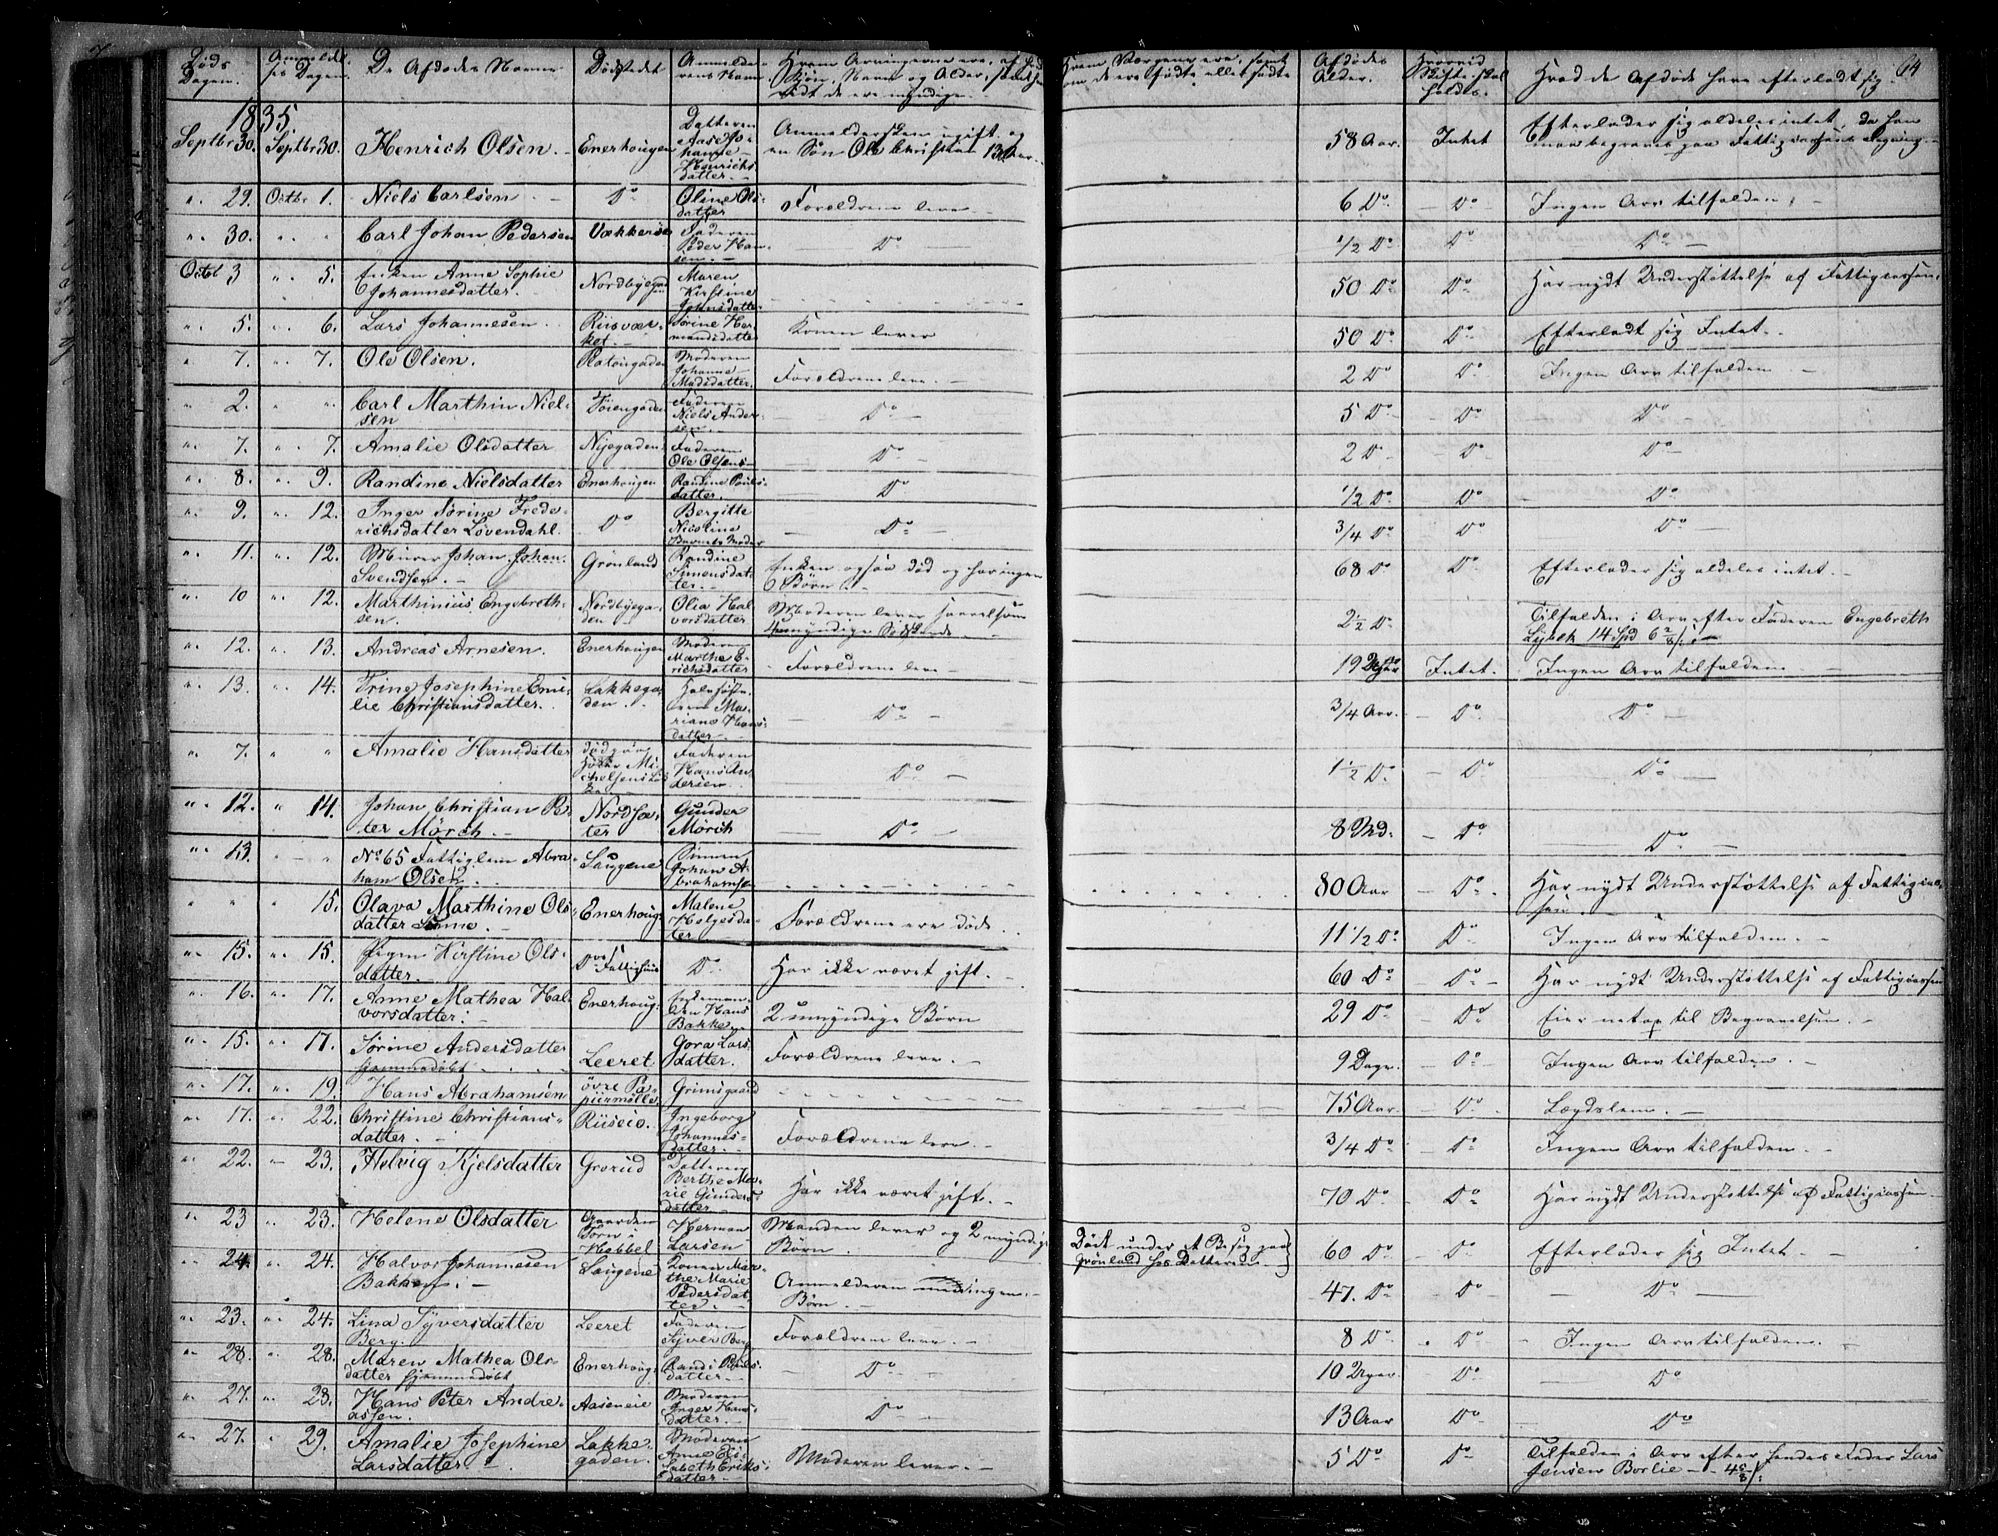 Døds Dagen. Anmeldelses Dagen. De Afdødes Navne Dødstedet Anmelderens Navn Afdødes Alder. Hvad de Afdøde have efterladt sig 64
1835
Septbr 30. Septbr 30. Henrich Olsen. Enerhougen Datteren Aase Johanne Henrichsdatter. Anmeldersken ugift og en Søn Ole Christian 13 Aar. 58 Aar. Intet Efterlader sig aldeles intet, da han maa begraves paa Fattigvæsenets Regning.
" 29. Octbr 1. Niels Carlsen Do Oline Olsdatter Forældrene leve 6 Do Do Ingen Arv tilfalden.
" 30. " " Carl Johan Pedersen Vækkerøe Faderen Peder Hansen. Do 1/2 Do Do Do
Octbr 3 " 5. Enken Anne Sophie Johannesdatter. Nordbyegaden Maren Kirstine Johnsdatter 50 Do Do Har nydt Understøttelse af Fattigcassen.
" 5. " 6. Lars Johannesen Riisværket. Sørine Hermandsdatter Konen lever 50 Do Do Efterladt sig Intet.
" 7. " 7. Ole Olsen. Rotougaden Moderen Johanne Madsdatter. Forældrene leve. 2 Do Do Ingen Arv tilfalden
" 2. " " Carl Marthin Nielsen Tøiengaden Faderen Niels Andersen. Do 5 Do Do Do
" 7. " 7. Amalie Olsdatter Nyegaden Faderen Ole Olsen Do 2 Do Do Do
" 8. " 9. Randine Nielsdatter Enerhougen Randine Poulsdatter. Do 1/2 Do Do Do
" 9. " 12. Inger Sørine Frederichsdatter Løvendahl. Do Bergitte Nicoline Barnets Moder Do 3/4 Do Do Do
" 11. " 12. Murer Johan Johan Svendsen. Grønland Randine Simensdatter. Enken ogsaa død og har ingen Børn. 68 Do Do Efterlader sig aldeles intet.
" 10 " 12. Marthinius Engebrethsen. Nordbyegaden Olia Halvorsdatter Moderen lever saavelsom 4 umyndige Sødskende 2 1/2 Do Tilfalden i Arv efter Faderen Engebreth Lysick 14 Spd
" 12. " 13. Andreas Arnesen. Enerhougen Moderen Marthe Erichsdatter Forældrene leve 19 Uger Intet. Ingen Arv tilfalden
" 13. " 14. Trine Josephine Emilie Christiansdatter. Lakkegaden. Mariane Hansdatter. Do 3/4 Aar. Do Do
" 7. " " Amalie Hansdatter Faderen Hans Andersen Do 1 1/2 Do Do Do
" 12. " 14. Johan Christian Peter Mørch. Nordsæter Gunder Mørch Do 8 Md. Do Do
" 13. " " No 65 Fattiglem Abraham Olsen. Saugene Sønnen Johan Abrahamsen 80 Aar Do Har nydt Understøttelse af Fattigcassen
" " " 15. Olava Marthine Olsdatter Enerhoug. Malene Holgesdatter Forældrene ere døde. 11 1/2 Do Do Ingen Arv tilfalden.
" 15. " 15. Pigen Kirstine Olsdatter. Fattighuus Do Har ikke været gift. 60 Do Do Har nydt Understøttelse af Fattigcassen
" 16. " 17. Anne Mathea Halvorsdatter. Enerhoug. Enkemanden Hans Bakke 2 umyndige Børn 29 Do Do Eier netop til Begravelsen.
" 15. " 17. Sørine Andersdatter hjemmedøbt Leeret Gora Larsdatter. Forældrene leve. 9 Dage. Do Ingen Arv tilfalden.
" 17. " 19. Hans Abrahamsen øvre Papiermølle Grimsgaard 75 Aar Do Lægdslem.
" 17. " 22. Christine Christiansdatter. Riiseie. Ingeborg Johannesdatter. Forældrene leve. 3/4 Do Do Ingen Arv tilfalden.
" 22. " 23. Helvig Kjelsdatter Grorud Datteren Berthe Marie Gundersdatter Har ikke været gift. 70 Do Do Har nydt Understøttelse af Fattigcassen
" 23 " 23. Helene Olsdatter Gaarden Torn i Hobbel Herman Larsen Manden lever og 2 myndige Børn. Død under et Besøg paa Grønland hos Datteren. 60 Do Do Efterlader sig Intet.
" 24. " 24. Halvor Johannesen Bakken. Saugene Konen Marthe Marie Pedersdatter. Anmelderen ingen Børn. 47. Do Do Do
" 23. " 24. Lina Syversdatter Berg. Leeret Faderen Syver Berg Forældrene leve. 8 Do Do Ingen Arv tilfalden.
" 28. " 28. Maren Mathea Olsdatter hjemmedøbt Enerhoug Randi Poulsdatter. Do 10 Uger. Do Do
" 27. " 28. Hans Peter Andreassen. Aaseneie Moderen Inger Hansdatter. Do 13 Aar Do Do
" 27. " 29. Amalie Josephine Larsdatter. Lakkegaden. Moderen Anne Elisabeth Eriksdatter Moderen lever. 5 Do Do Tilfalden i Arv efter hendes Fader Lars Jensen Borlie